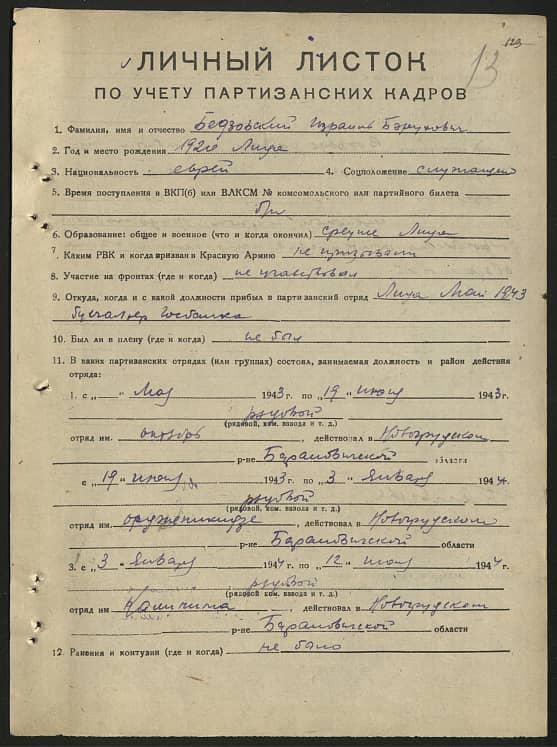 123
13
ЛИЧНЫЙ ЛИСТОК
ПО УЧЕТУ ПАРТИЗАНСКИХ КАДРОВ
1. Фамилия, имя и отчество Бедзовский Израиль Борухович
2. Год и место рождения 1920г Лида
3. Национальность еврей 4. Соцположение служащий
5. Время поступления в ВКП(б) или ВЛКСМ № комсомольского или партийного билета
б/п
6. Образование: общее и военное (что и когда окончил) среднее Лида
7. Каким РВК и когда призван в Красную Армию не призывался
8. Участие на фронтах (где и когда) не участвовал
9. Откуда, когда и с какой должности прибыл в партизанский отряд Лида Май 1943
бухгалтер Госбанка
10. Был ли в плену (где и когда) не был
11. В каких партизанских отрядах (или группах) состоял, занимаемая должность и район действия
отряда:
1. с „ “ Мая 1943 г. по „19 “ июня 1943г.
рядовой
(рядовой, ком. взвода и т. д.)
отряд им. октябрь , действовал в Новогрудском
р-не Барановичской области
с „19 “ июня 1943 г. по „3 “ января 1944г.
рядовой
(рядовой, ком. взвода и т. д.)
отряд им. орджоникидзе , действовал в Новогрудском
р-не Барановичской области
3. с „3 “ января 1944 г. по „12 “ июля 1944 г.
рядовой
(рядовой, ком. взвода и т. д.)
отряд им Калинина , действовал в Новогрудском
р-не Барановичской области
12. Ранения и контузии (где и когда) не было